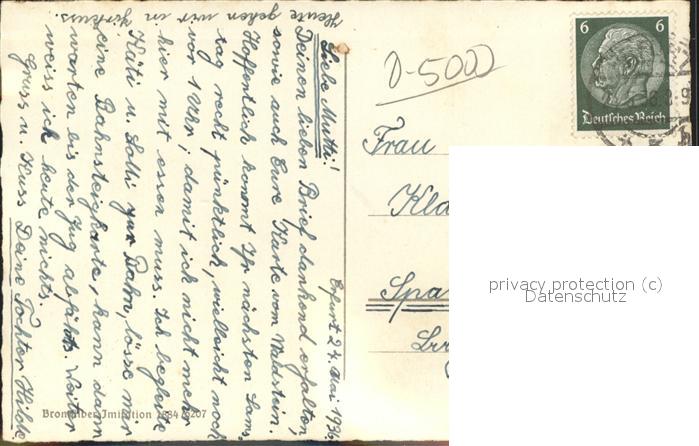 Erfurt 24. Mai 1936
Liebe Mutti!
Deinen lieben Brief dankend erhalten,
sowie auch Eure Karte vom Waldstein.
Hoffentlich kommt Ihr nächsten Sams-
tag recht pünktlich, vielleicht noch
vor 1 Uhr, damit ich nicht mehr
hier mit essen muss. Ich begleite
Käti u. Lolli zur Bahn, lösse mir
eine Bahnsteigkarte, kann dann
warten bis der Zug abfährt. Weiter
weiss ich heute nichts.
Gruss u. Kuss Deine Tochter Hilde
Heute gehen wir in Zirkus.
D-5000
6 6
Deutsches Reich
Frau
Spa
privacy protection (c)
Datenschutz
Bromsilber Imitation 6207